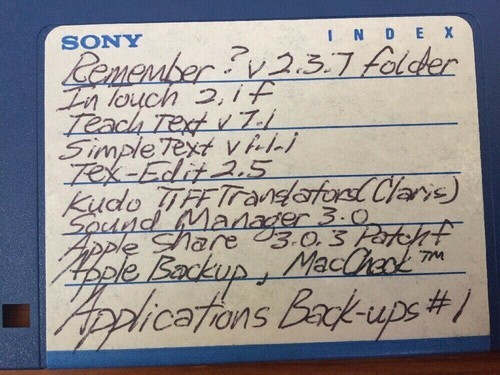 SONY INDEX
Remember? v 2.3.7 folder
In Touch 2.1 f
Teach Text v 7.1
SimpleText v 1.1.1
Tex-Edit 2.5
Kudo TIFF Translators (Claris)
Sound Manager 3.0
Apple Share 3.0.3 Patch f
Apple Backup, MacCheck™
Applications Back-ups #1